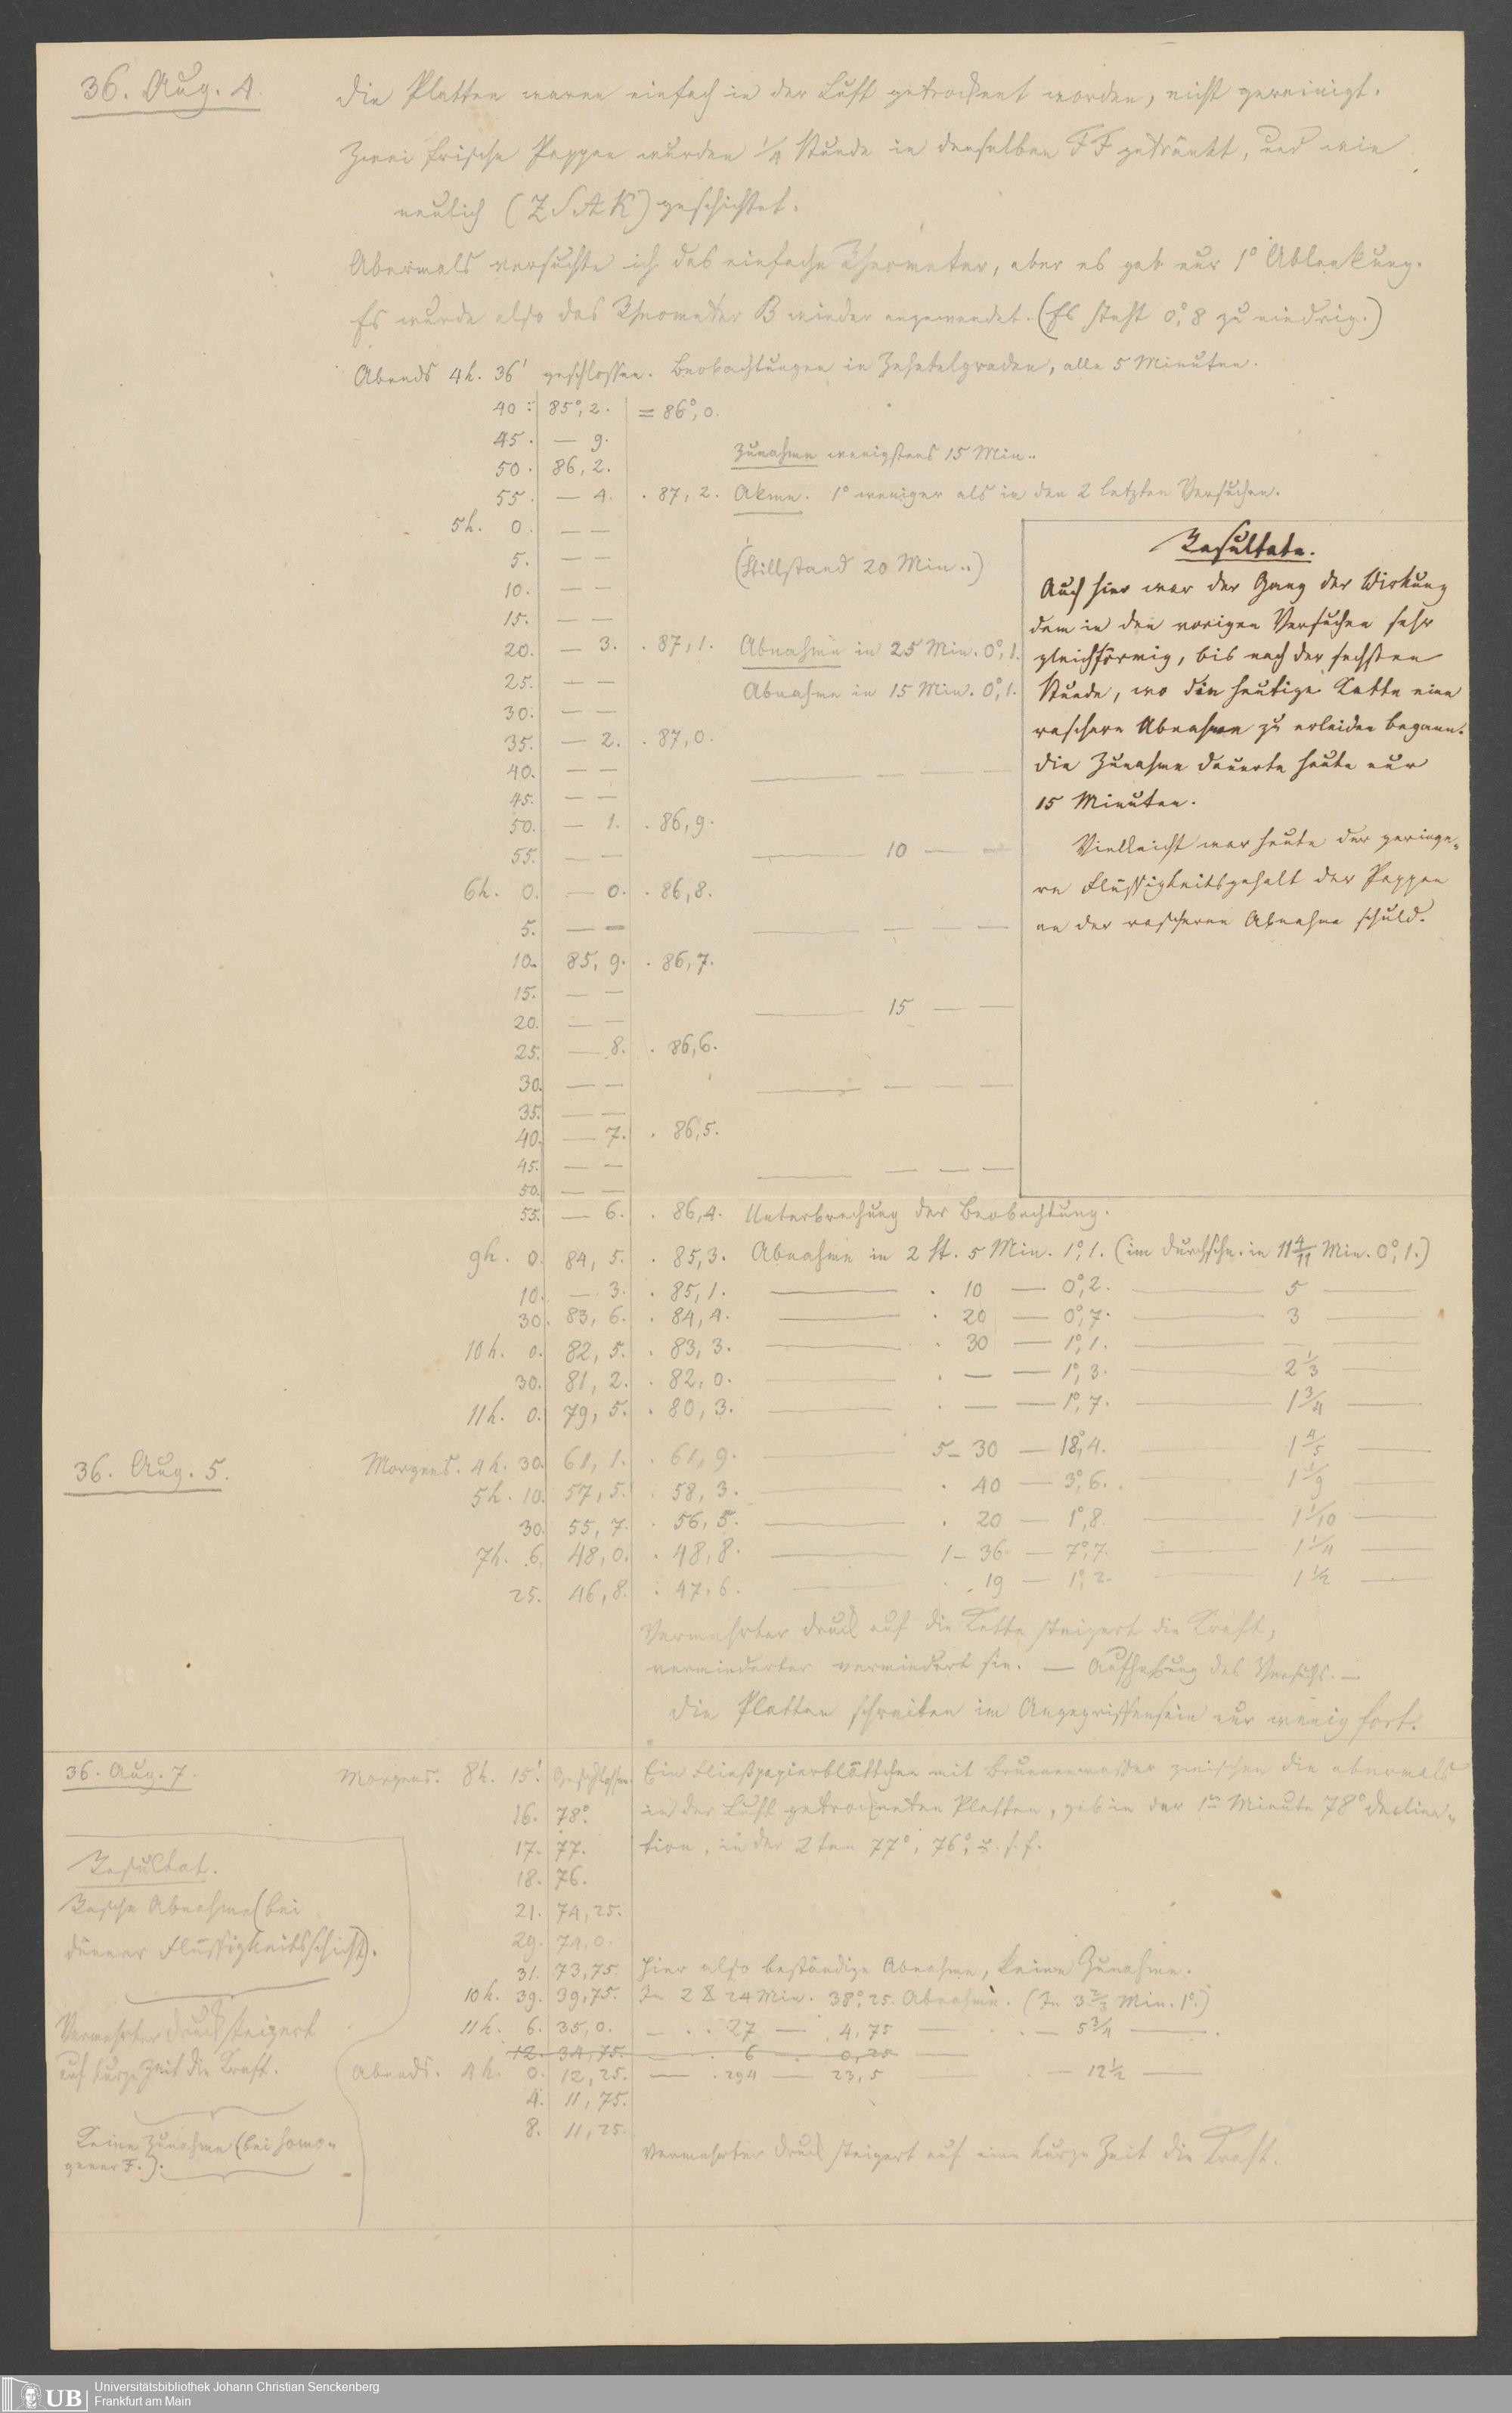 36. Aug. 4.
Die Platten waren einfach in der Luft getrocknet worden, nicht gereinigt.
Zwei frische Pappen wurden 1/4 Stunde in derselben FF getränkt, und wie
neulich (ZSAK) geschichtet.
Abermals versuchte ich das einfache Rheometer, aber es gab nur 1° Ablenkung.
Es wurde also das Rheometer B wieder angewendet. (Es steht 0°,8 zu niedrig.)
Abends 4h. 36' geschlossen. Beobachtungen in Zehntelgraden, alle 5 Minuten.
40: 85°,2. = 86°,0.
45. — 9.
Zunahme wenigstens 15 Min..
50. 86,2.
55. — 4. . 87,2. Akme. 1° weniger als in den 2 letzten Versuchen.
5h. 0. — —
5. — — (Stillstand 20 Min..)
10. — —
15. — —
20. — 3. . 87,1. Abnahme in 25 Min. 0°,1.
25. — — Abnahme in 15 Min. 0°,1.
30. — —
35. — 2. . 87,0.
40. — — — — — —
45. — —
50. — 1. . 86,9.
55. — — — 10 — —
6h. 0. — 0. . 86,8.
5. — — — — — —
10. 85,9. . 86,7.
15. — — — 15 — —
20. — —
25. — 8. . 86,6.
30. — — — — — —
35. — —
40. — 7. . 86,5.
45. — — — — — —
50. — —
55. — 6. . 86,4. Unterbrechung der Beobachtung.
Resultate.
Auch hier war der Gang der Wirkung
dem in den vorigen Versuchen sehr
gleichförmig, bis nach der sechsten
Stunde, wo die heutige Kette eine
raschere Abnahme zu erleiden begann.
Die Zunahme dauerte heute nur
15 Minuten.
Vielleicht war heute der geringe-
re Flüssigkeitsgehalt der Pappen
an der rascheren Abnahme schuld.
9h. 0. 84,5. . 85,3. Abnahme in 2 St. 5 Min. 1°,1. (im Durchschn. in 11 4/11 Min. 0°,1.)
10. — 3. . 85,1. — . 10 — 0°,2. — 5 —
30. 83,6. . 84,4. — . 20 — 0°,7. — 3 —
10h. 0. 82,5. . 83,3. — . 30 — 1°,1. — — —
30. 81,2. . 82,0. — . — — 1°,3. — 2 1/3 —
11h. 0. 79,5. . 80,3. — . — — 1°,7. — 1 3/4 —
36. Aug. 5.
Morgens. 4h. 30. 61,1. . 61,9. 5 – 30 — 18°,4. — 1 4/5 —
5h. 10. 57,5. . 58,3. — . 40 — 3°,6. — 1 1/9 —
30. 55,7. . 56,5. — . 20 — 1°,8. — 1 1/10 —
7h. 6. 48,0. . 48,8. — 1 – 36 — 7°,7. — 1 1/4 —
25. 46,8. . 47,6. — . 19 — 1°,2. — 1 1/2 —
Vermehrter Druck auf die Kette steigert die Kraft,
verminderter vermindert sie. — Aufhebung des Versuchs. —
Die Platten schreiten im Angegriffensein nur wenig fort.
36. Aug. 7.
Morgens. 8h. 15'. Geschlossen. Ein Fließpapierblättchen mit Brunnenwasser zwischen die abermals
16. 78° in der Luft getrockneten Platten, gab in der 1n Minute 78° Declina-
17. 77. tion, in der 2ten 77°, 76°, u. s. f.
18. 76.
21. 74,25.
29. 74,0.
31. 73,75. Hier also beständige Abnahme, keine Zunahme.
10h. 39. 39,75. In 2 St 24 Min. 38°,25. Abnahme. (In 3 2/3 Min. 1°.)
11h. 6. 35,0. — . . 27 — 4,75 — . — 5 3/4 —
12. 34,75. — . 6 — 0,25 —
Abends. 4h. 0. 12,25. — . 294 — 23,5 — . — 12 1/2 —
4. 11,75.
8. 11,25.
Vermehrter Druck steigert auf eine kurze Zeit die Kraft.
Resultat.
Rasche Abnahme (bei
dünner Flüssigkeitsschicht).
Vermehrter Druck steigert
auf kurze Zeit die Kraft.
Keine Zunahme (bei homo-
gener F.).
UB
Universitätsbibliothek Johann Christian Senckenberg
Frankfurt am Main